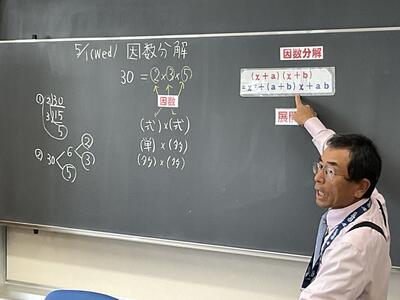 5/1(Wed) 因数分解
30 = ②×③×⑤
因数
(式)×(式)
(単)×(多)
(多)×(多)
① 2)30
3)15
5
② 30 6 ② ③ ⑤
因数分解
(x+a)(x+b)
=x²+(a+b)x+ab
展開